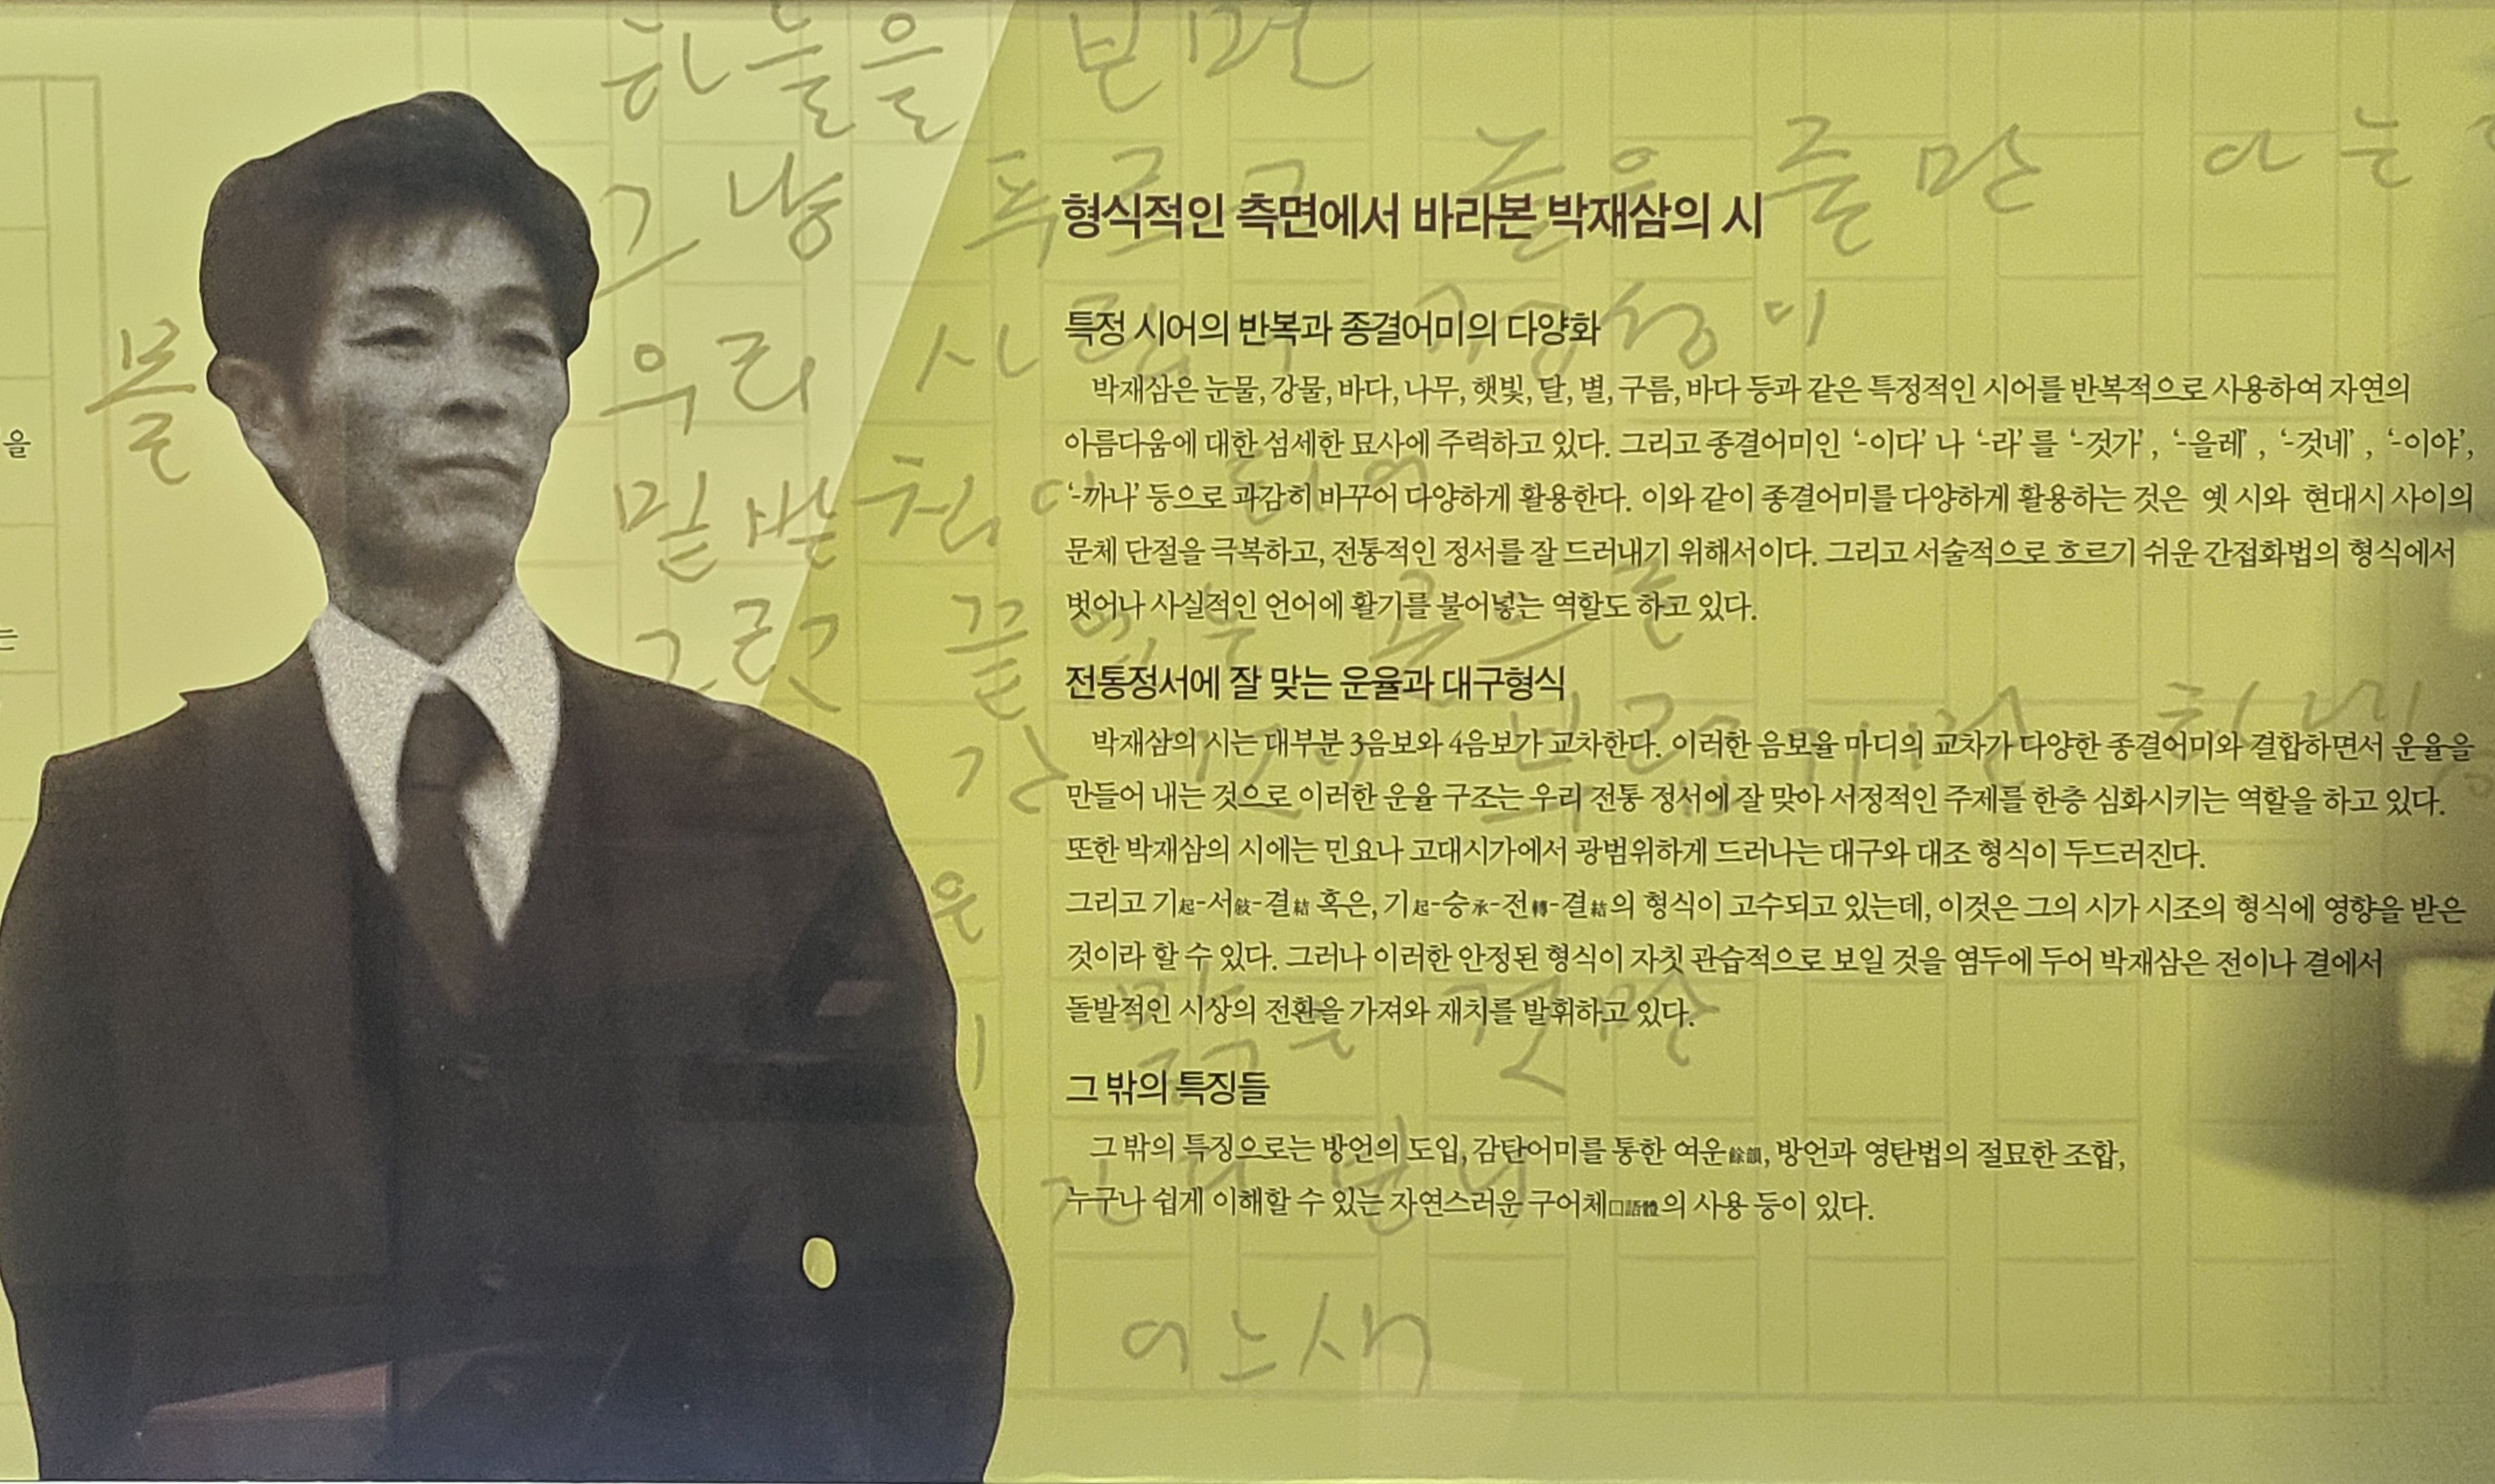 하늘을 보면
그냥 푸르고 높은 줄만 아는
우리 사랑
물
을
는
형식적인 측면에서 바라본 박재삼의 시
특정 시어의 반복과 종결어미의 다양화
박재삼은 눈물, 강물, 바다, 나무, 햇빛, 달, 별, 구름, 바다 등과 같은 특정적인 시어를 반복적으로 사용하여 자연의
아름다움에 대한 섬세한 묘사에 주력하고 있다. 그리고 종결어미인 ‘-이다’ 나 ‘-라’ 를 ‘-것가’ , ‘-을레’ , ‘-것네’ , ‘-이야’,
‘-까나’ 등으로 과감히 바꾸어 다양하게 활용한다. 이와 같이 종결어미를 다양하게 활용하는 것은 옛 시와 현대시 사이의
문체 단절을 극복하고, 전통적인 정서를 잘 드러내기 위해서이다. 그리고 서술적으로 흐르기 쉬운 간접화법의 형식에서
벗어나 사실적인 언어에 활기를 불어넣는 역할도 하고 있다.
전통정서에 잘 맞는 운율과 대구형식
박재삼의 시는 대부분 3음보와 4음보가 교차한다. 이러한 음보율 마디의 교차가 다양한 종결어미와 결합하면서 운율을
만들어 내는 것으로 이러한 운율 구조는 우리 전통 정서에 잘 맞아 서정적인 주제를 한층 심화시키는 역할을 하고 있다.
또한 박재삼의 시에는 민요나 고대시가에서 광범위하게 드러나는 대구와 대조 형식이 두드러진다.
그리고 기起-서敍-결結 혹은, 기起-승承-전轉-결結의 형식이 고수되고 있는데, 이것은 그의 시가 시조의 형식에 영향을 받은
것이라 할 수 있다. 그러나 이러한 안정된 형식이 자칫 관습적으로 보일 것을 염두에 두어 박재삼은 전이나 결에서
돌발적인 시상의 전환을 가져와 재치를 발휘하고 있다.
그 밖의 특징들
그 밖의 특징으로는 방언의 도입, 감탄어미를 통한 여운餘韻, 방언과 영탄법의 절묘한 조합,
누구나 쉽게 이해할 수 있는 자연스러운 구어체口語體의 사용 등이 있다.
어느새